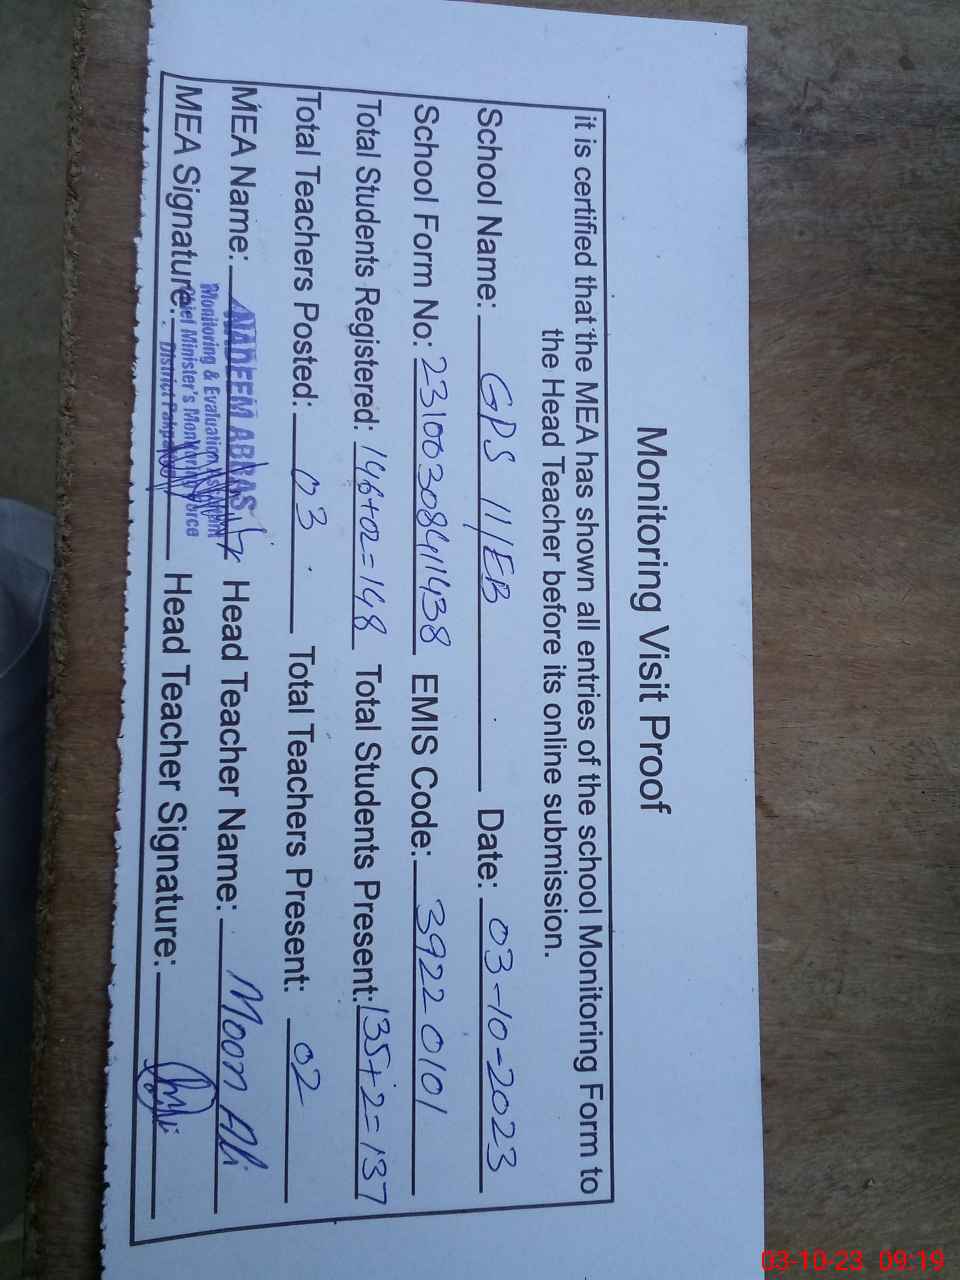 Monitoring Visit Proof
it is certified that the MEA has shown all entries of the school Monitoring Form to
the Head Teacher before its online submission.
School Name: GPS 11/EB Date: 03-10-2023
School Form No: 23100308411438 EMIS Code: 39220101
Total Students Registered: 146+02=148 Total Students Present: 135+2=137
Total Teachers Posted: 03 Total Teachers Present: 02
MEA Name: NADEEM ABBAS Head Teacher Name: Moon Ali
Monitoring & Evaluation
Chief Minister's Monitoring Force
MEA Signature: District Head Teacher Signature:
03-10-23 09:19